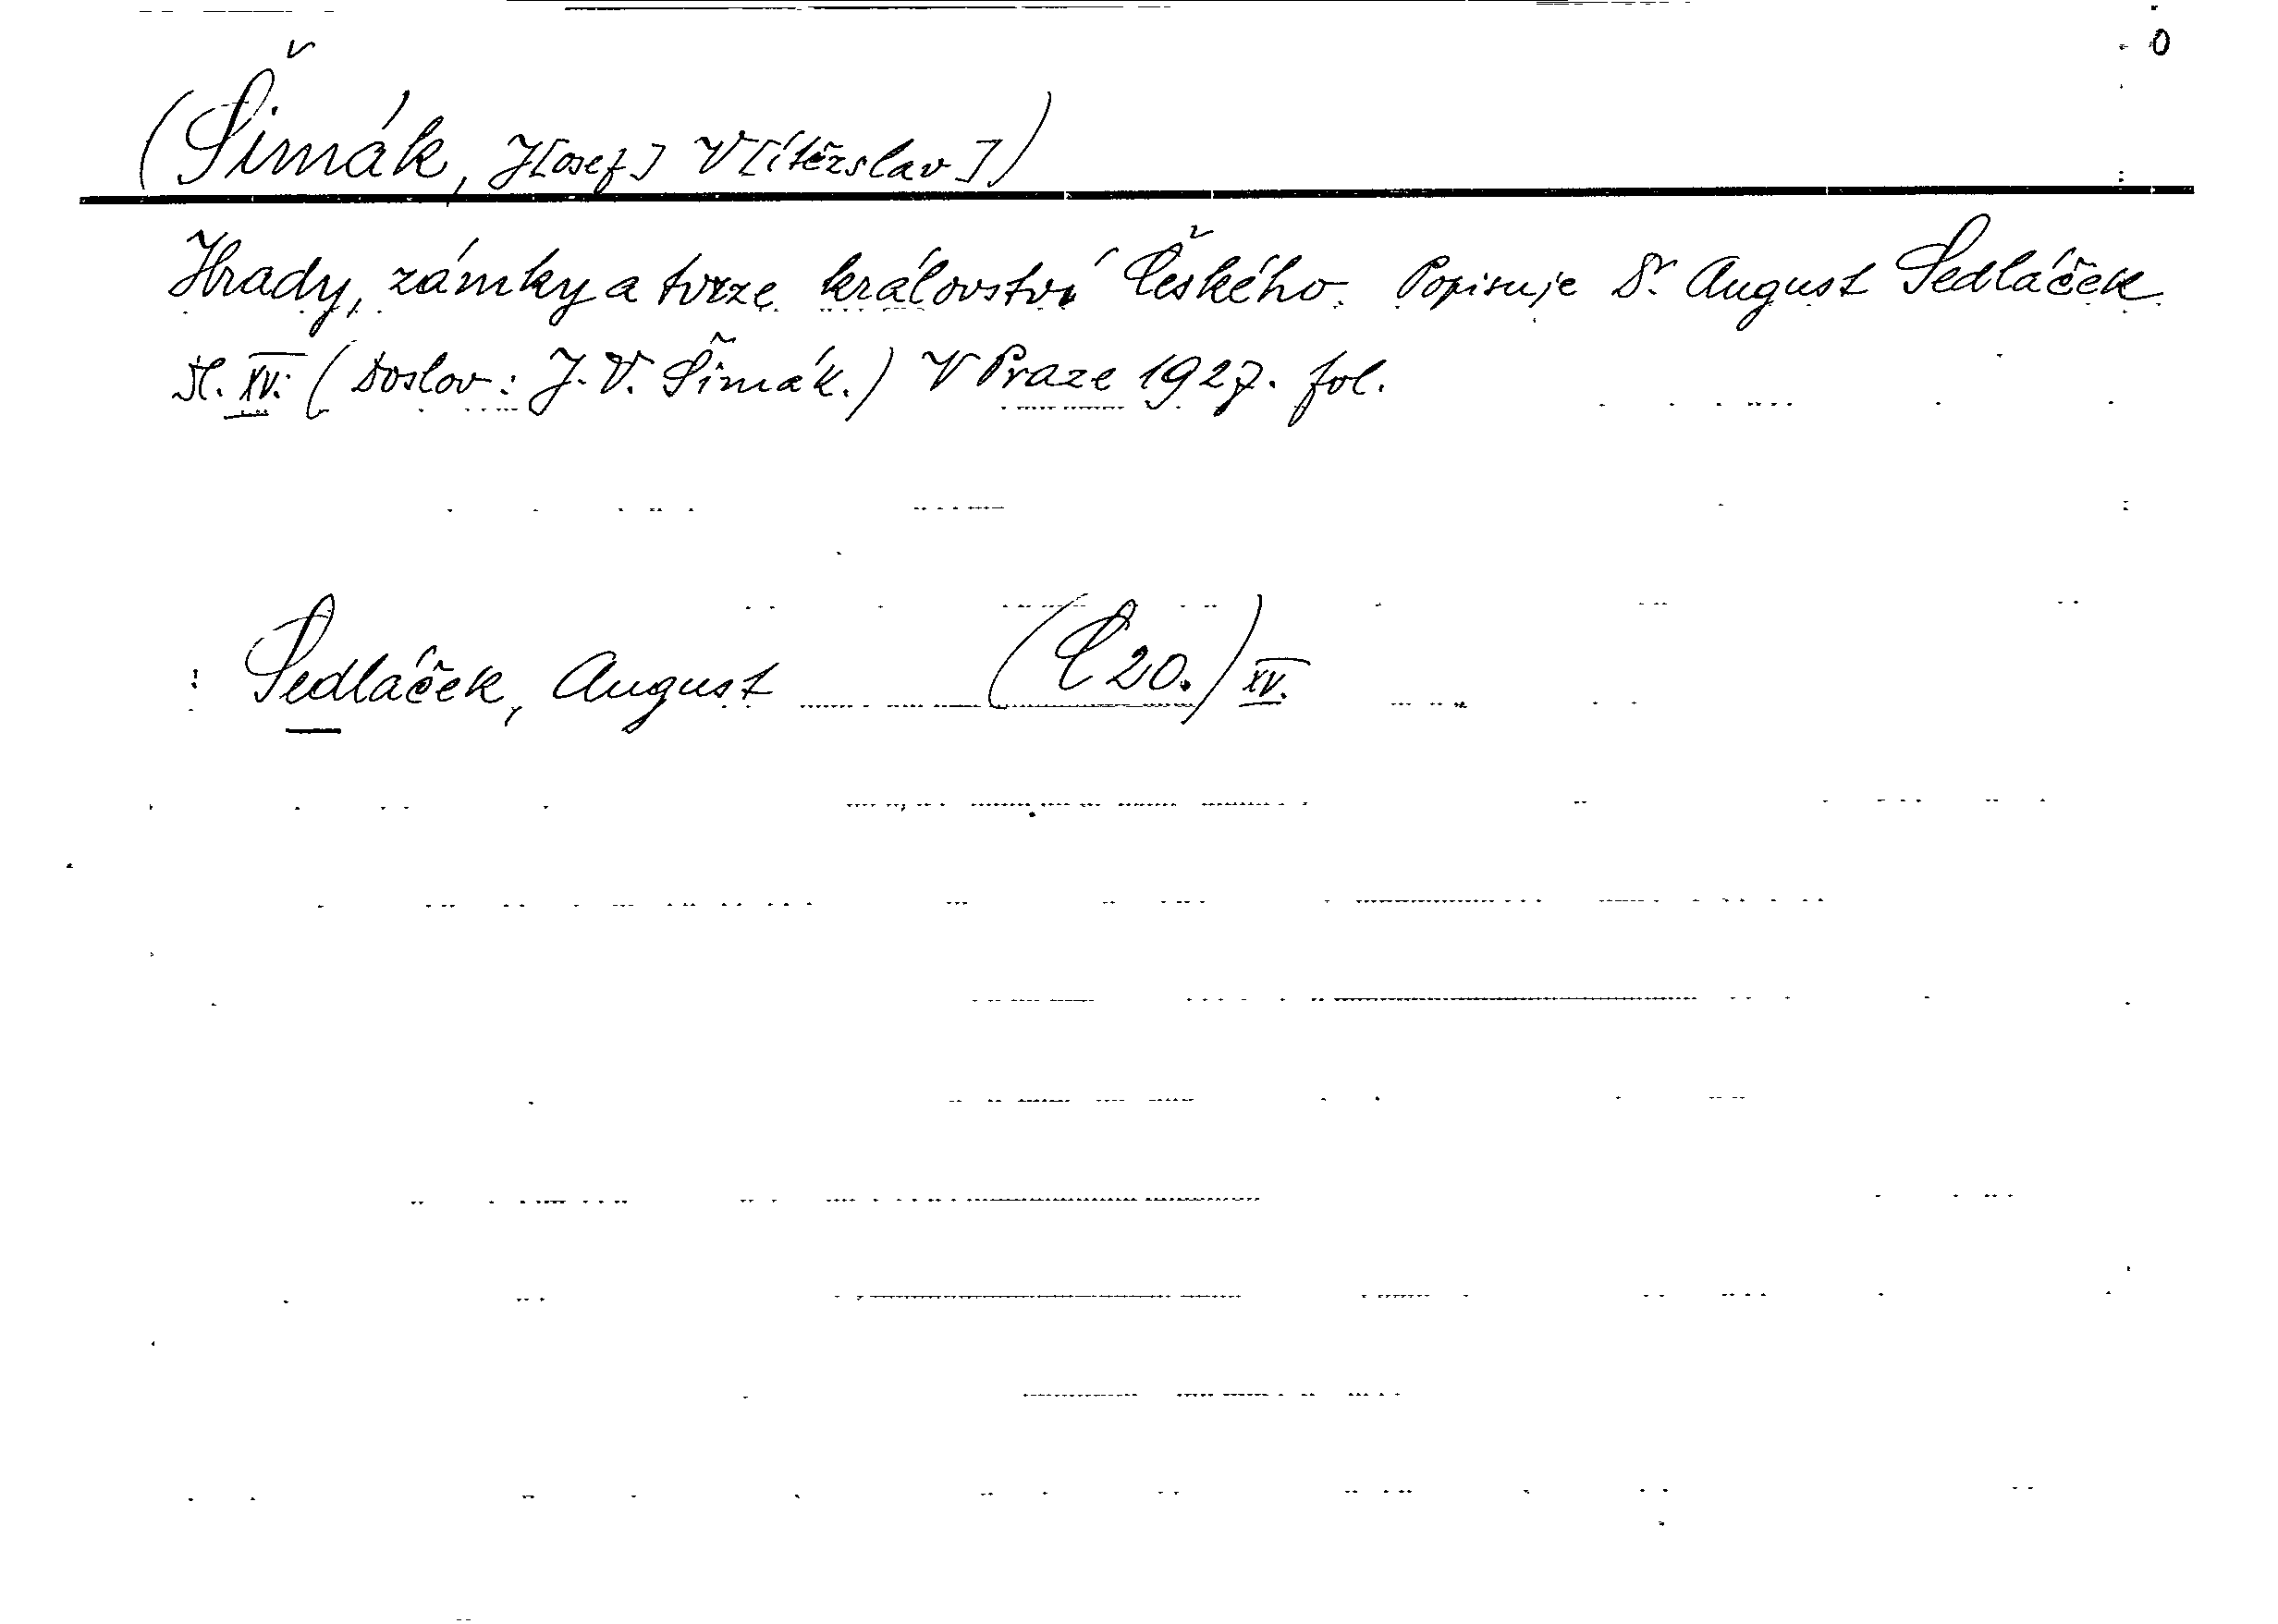 0
(Šimák, J[osef] V[ítězslav])
Hrady, zámky a tvrze království Českého. Popisuje Dr. August Sedláček
Dl. XV. (Doslov: J. V. Šimák.) V Praze 1927. fol.
: Sedláček, August (C 20.) XV.